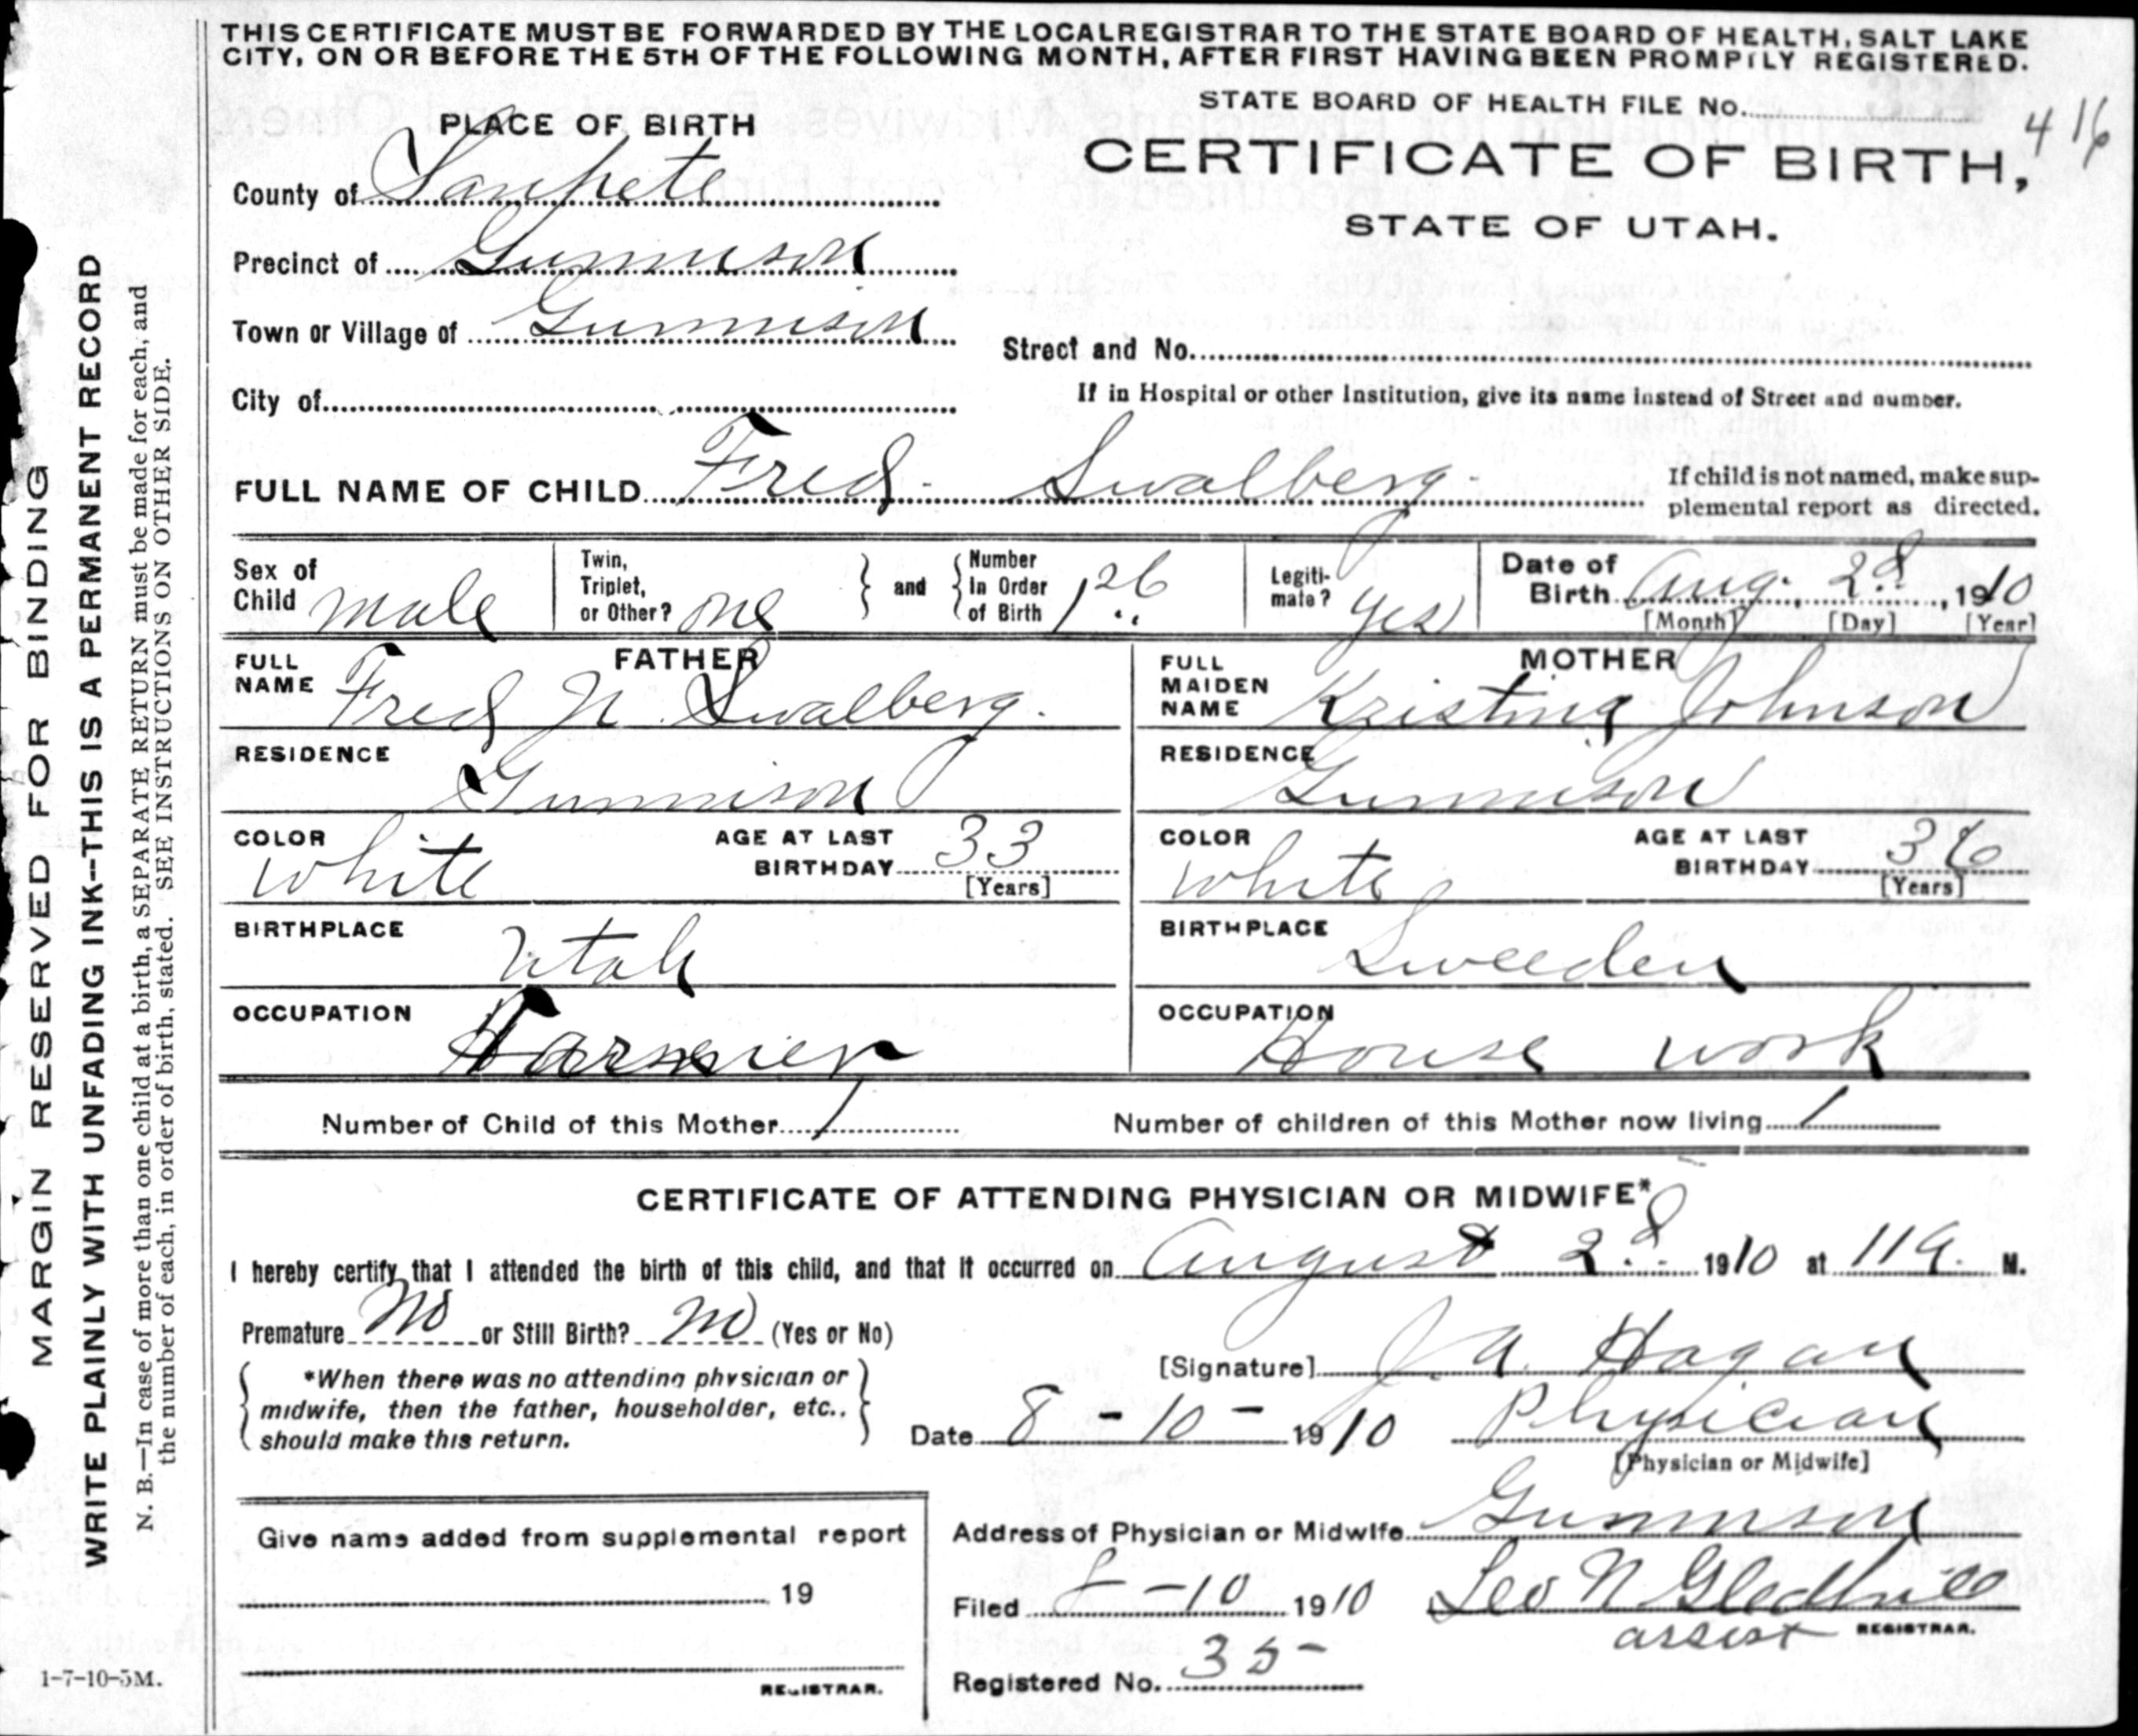 THIS CERTIFICATE MUST BE FORWARDED BY THE LOCALREGISTRAR TO THE STATE BOARD OF HEALTH, SALT LAKE
CITY, ON OR BEFORE THE 5TH OF THE FOLLOWING MONTH, AFTER FIRST HAVING BEEN PROMPTLY REGISTERED.
STATE BOARD OF HEALTH FILE No.
416
PLACE OF BIRTH
CERTIFICATE OF BIRTH,
STATE OF UTAH.
County of Sanpete
Precinct of Gunnison
Town or Village of Gunnison
Street and No.
City of
If in Hospital or other Institution, give its name instead of Street and number.
FULL NAME OF CHILD Fred Swalberg
If child is not named, make sup-
plemental report as directed.
Sex of
Child male
Twin,
Triplet,
or Other? one
and
Number
In Order
of Birth
Legiti-
mate? yes
Date of
Birth Aug. 2d, 1910
[Month] [Day] [Year]
FATHER
FULL
NAME Fred N. Swalberg.
MOTHER
FULL
MAIDEN
NAME Kristina Johnson
RESIDENCE
Gunnison
RESIDENCE
Gunnison
COLOR
white
AGE AT LAST
BIRTHDAY 33
[Years]
COLOR
white
AGE AT LAST
BIRTHDAY 36
[Years]
BIRTHPLACE
Utah
BIRTHPLACE
Sweeden
OCCUPATION
Farmer
OCCUPATION
House work
Number of Child of this Mother 1
Number of children of this Mother now living 1
CERTIFICATE OF ATTENDING PHYSICIAN OR MIDWIFE*
I hereby certify that I attended the birth of this child, and that it occurred on August 2d 1910 at 11 a. M.
Premature No or Still Birth? No (Yes or No)
*When there was no attending physician or
midwife, then the father, householder, etc.,
should make this return.
[Signature] J. A. Hagan
Date 8-10-1910
Physician
[Physician or Midwife]
Give name added from supplemental report
19
REGISTRAR.
Address of Physician or Midwife Gunnison
Filed 8-10 1910 Leo N Gledhill
assist REGISTRAR.
Registered No. 35
MARGIN RESERVED FOR BINDING
WRITE PLAINLY WITH UNFADING INK--THIS IS A PERMANENT RECORD
N. B.—In case of more than one child at a birth, a SEPARATE RETURN must be made for each, and
the number of each, in order of birth, stated. SEE INSTRUCTIONS ON OTHER SIDE.
1-7-10-5M.